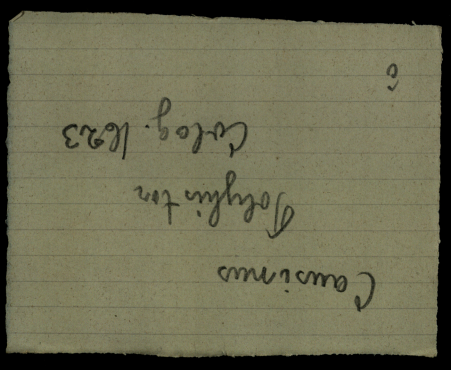 Causinus
Polyhistor
Colog. 1623